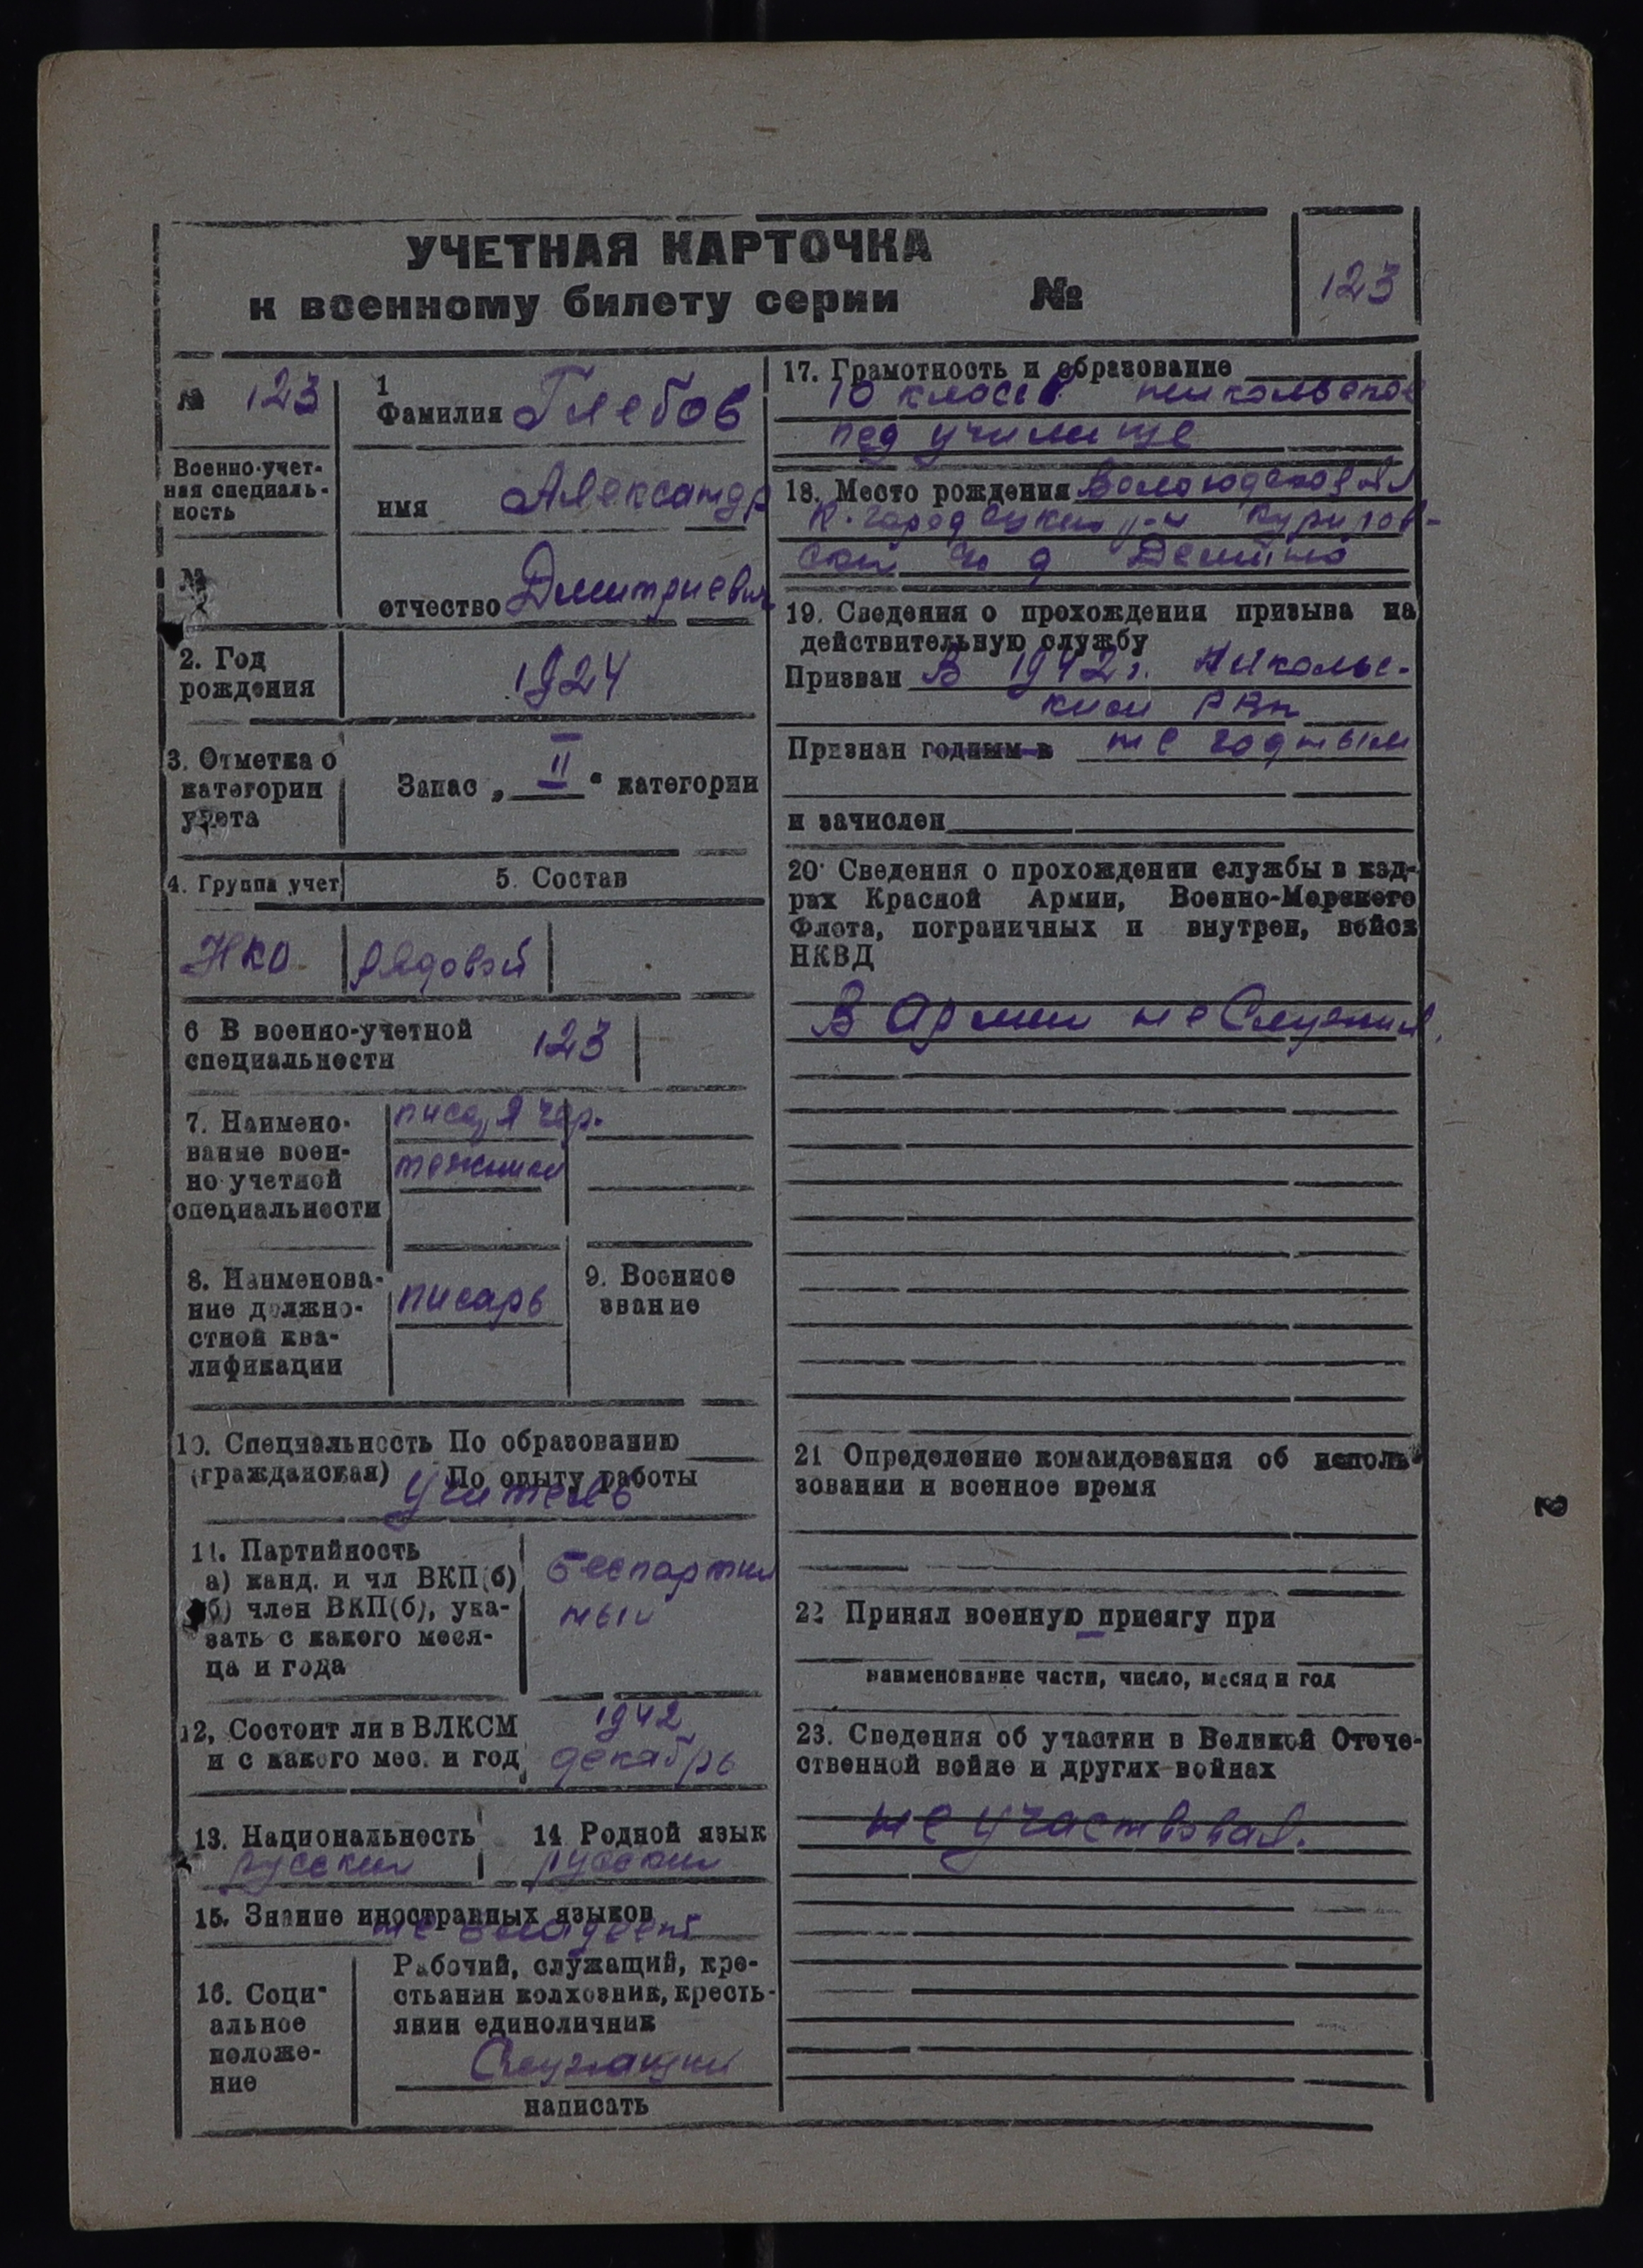 УЧЕТНАЯ КАРТОЧКА
к военному билету серии №
123
№ 123
Военно-учет-
ная специаль-
ность
№
1
Фамилия Глебов
имя Александр
отчество Дмитриевич
2. Год
рождения
1924
3. Отметка о
категории
учета
Запас „ II “ категории
4. Группа учет
5. Состав
НКО
рядовой
6 В военно-учетной
специальности
123
7. Наимено-
вание воен-
но учетной
специальности
писаря чер-
тежники
8. Наименова-
ние должно-
стной ква-
лификации
писарь
9. Военное
звание
10. Специальность По образованию
(гражданская) По опыту работы
учитель
11. Партийность
а) канд. и чл ВКП(б)
б) член ВКП(б), ука-
зать с какого меся-
ца и года
беспартий
ный
12, Состоит ли в ВЛКСМ
и с какого мес. и год
1942
декабрь
13. Национальность
русский
14 Родной язык
русский
15. Знание иностранных языков
не владеет
16. Соци-
альное
положе-
ние
Рабочий, служащий, кре-
стьянин колхозник, кресть-
янин единоличник
Служащий
написать
17. Грамотность и образование
10 классов никольское
пед училище
18. Место рождения Вологодской обл
К. городецкий р-н Курилов-
ский д
19. Сведения о прохождения призыва на
действительную службу
Призван В 1942 г. Николь-
ский РВК
Признан годным в не годным
и зачислен
20. Сведения о прохождении службы в кад-
рах Красной Армии, Военно-Морского
Флота, пограничных и внутрен, войск
НКВД
В Армии не Служил.
21 Определение командования об исполь-
зовании и военное время
22 Принял военную присягу при
наименование части, число, месяц и год
23. Сведения об участии в Великой Отече-
ственной войне и других войнах
не участвовал.
2